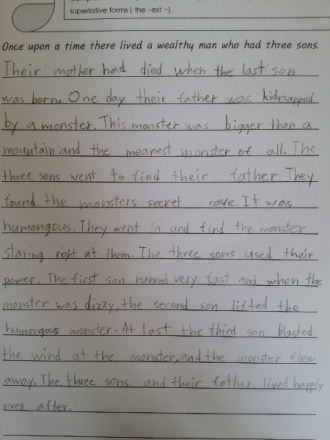 superlative forms ( the -est -).
Once upon a time there lived a wealthy man who had three sons.
Their mother had died when the last son
was born. One day their father was kidnapped
by a monster. This monster was bigger than a
mountain and the meanest monster of all. The
three sons went to find their father. They
found the monsters secret cave. It was
humongous. They went in and find the monster
staring right at them. The three sons used their
power. The first son runned very fast and when the
monster was dizzy, the second son lifted the
humongous monster. At last the third son blasted
the wind at the monster, and the monster flew
away. The three sons and their father lived happily
ever after.